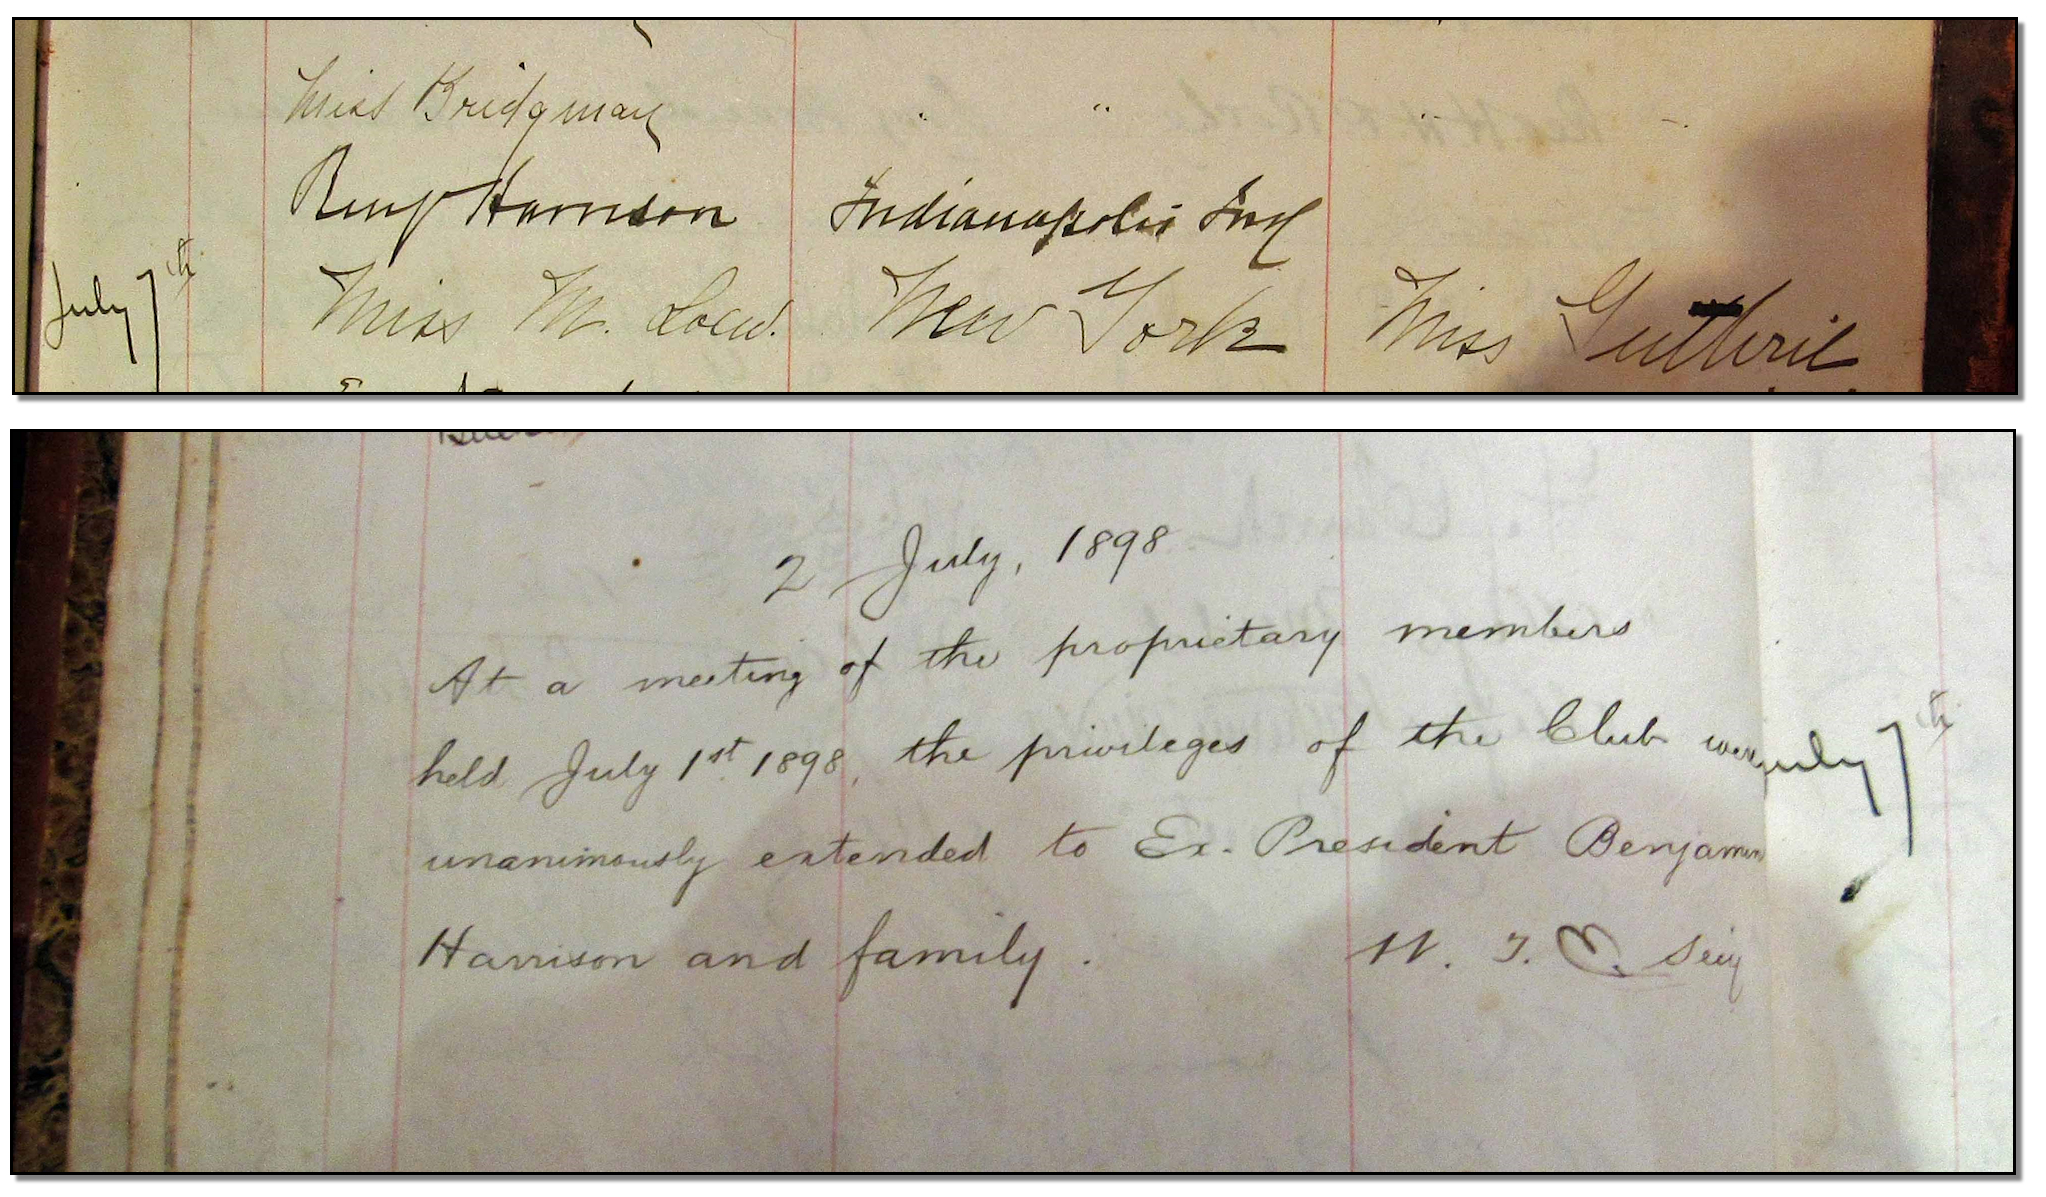 Miss Bridgman " " " "
Benj Harrison Indianapolis Ind
July 7th Miss M. Low. New York Miss Guthrie
2 July, 1898
At a meeting of the proprietary members
held July 1st 1898, the privileges of the Club were
July 7th
unanimously extended to Ex-President Benjamin
Harrison and family.